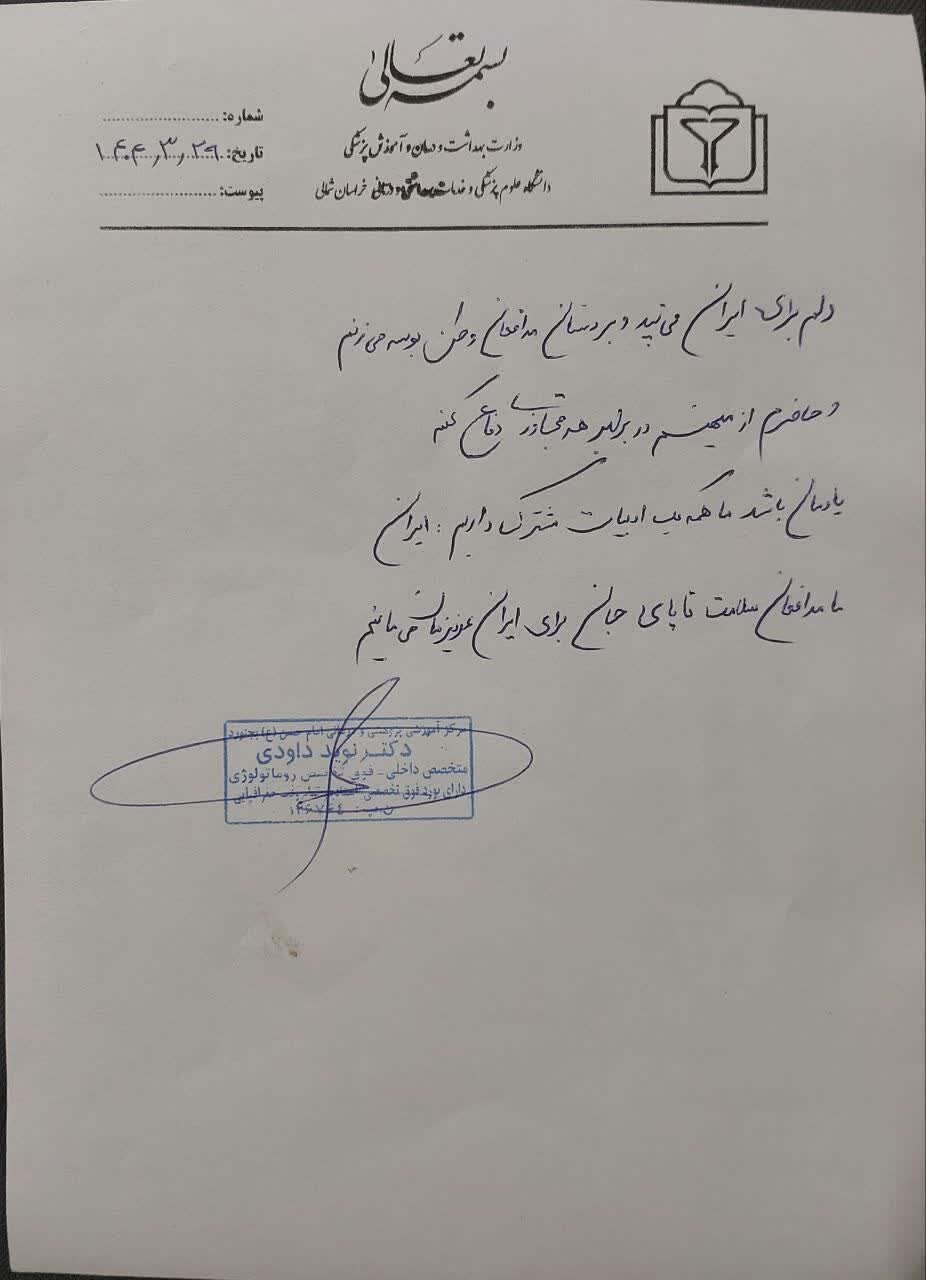 بسمه تعالی
وزارت بهداشت و درمان و آموزش پزشکی
دانشگاه علوم پزشکی و خدمات بهداشتی و درمانی خراسان شمالی
شماره:
تاریخ: ۱۴۰۴,۳,۲۹
پیوست:
دلم برای ایران می‌تپد و بر دستان مدافعان وطن بوسه می‌زنم
و حاضرم از میهنم در برابر هر متجاوزی دفاع کنم
یادمان باشد ما همه یک ادبیات مشترک داریم : ایران
ما مدافعان سلامت تا پای جان برای ایران عزیزمان می‌مانیم
مرکز آموزشی پژوهشی و درمانی امام حسن (ع) بجنورد
دکتر نوید داودی
متخصص داخلی - فوق تخصص روماتولوژی
دارای بورد فوق تخصصی